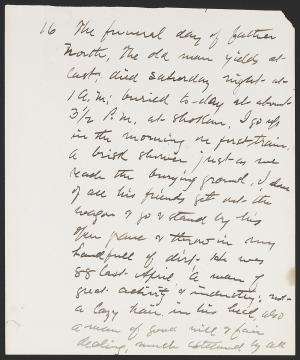 16 The funeral day of father
North, the old man yields at
last, died Saturday night at
1 A.M; buried to-day at about
3½ P.M. at Shokan. I go up
in the morning on first train.
A brisk shower just as we
reach the burying ground. I alone
of all his friends get out the
wagon & go & stand by his
open grave & throw in my
handfull of dirt. He was
88 last April, a man of
great activity & industry; not
a lazy hair in his head, also
a man of good will & fair
dealing, much esteemed by all